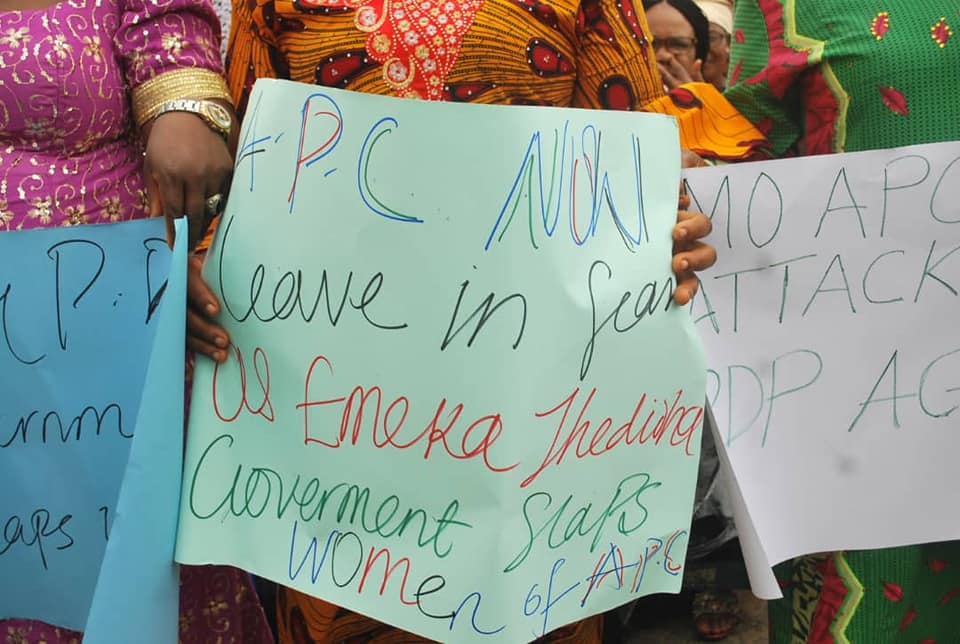 A.P.C NOW
Leave in fear
As Emeka Ihedioha
Goverment Slaps
Women of A.P.C
P.D
ernm
aps
MO APC
ATTACK
PDP AG